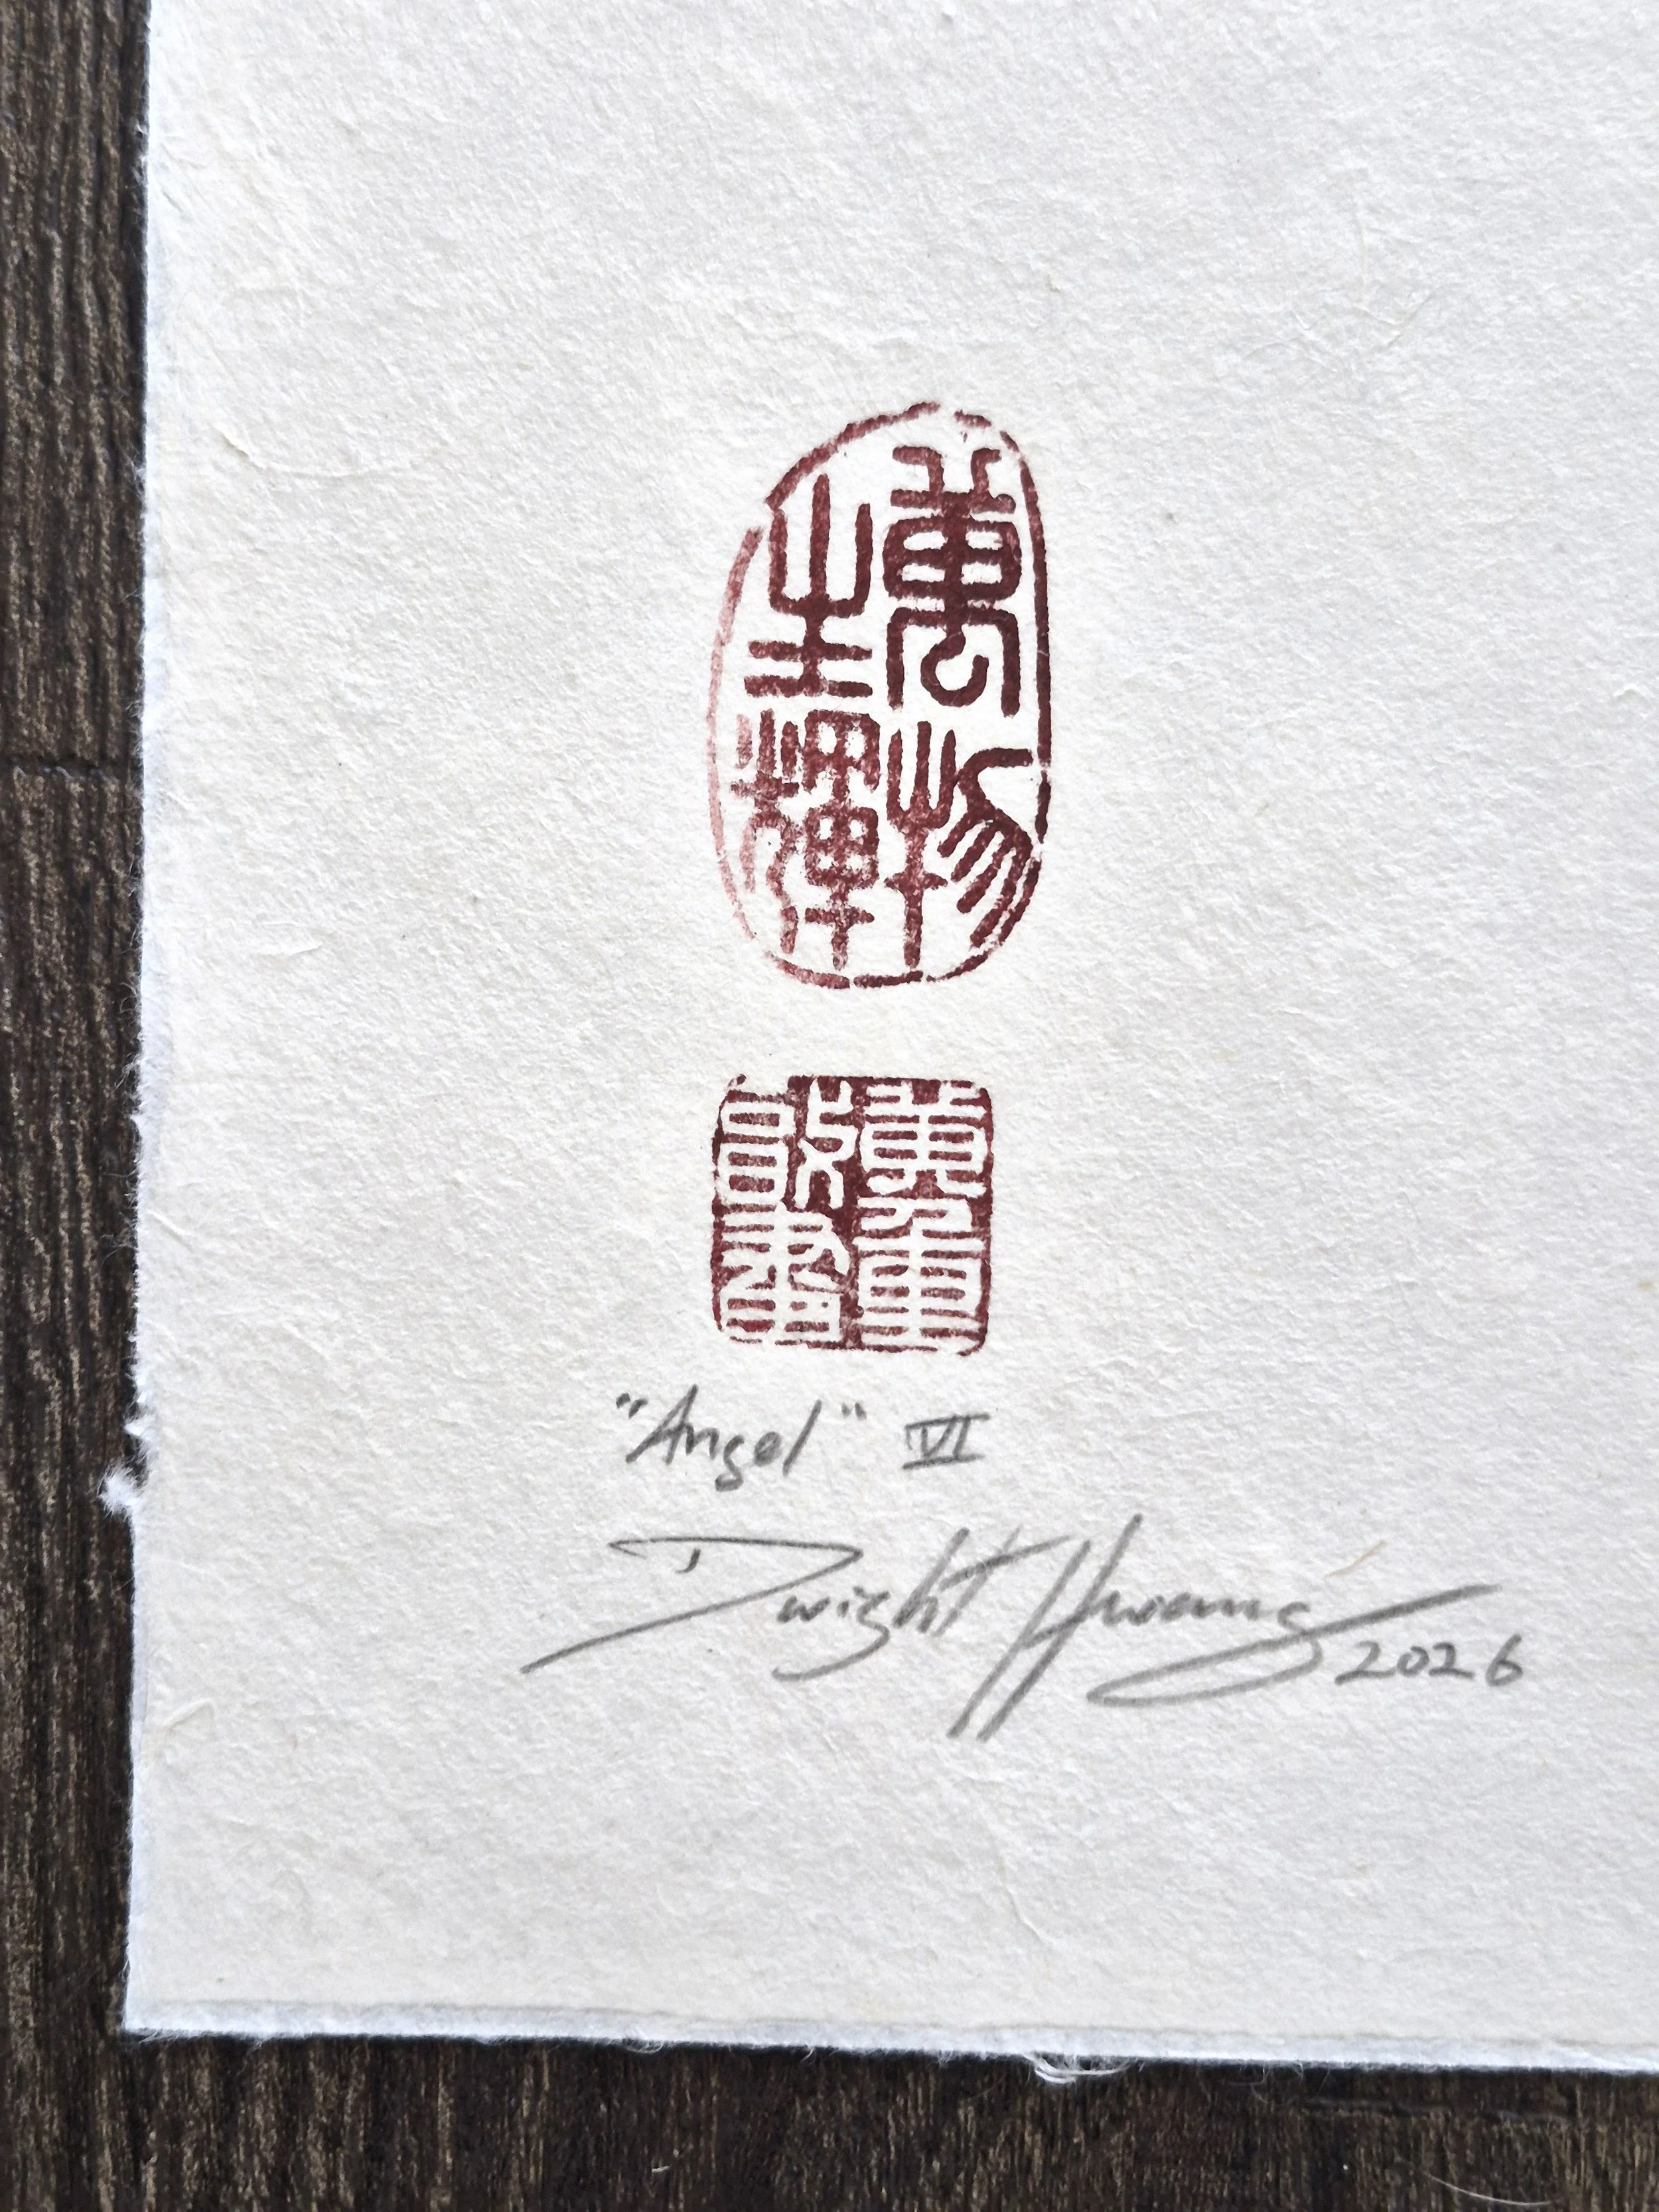 萬物
生輝
"Angel" VI
Dwight Hwang 2026